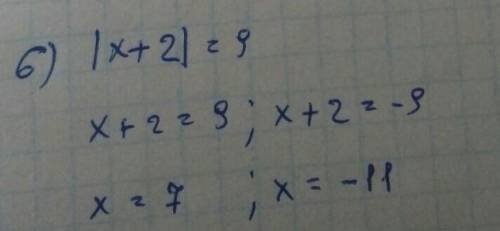 б) |x+2| = 9
x+2 = 9 ; x+2 = -9
x = 7 ; x = -11